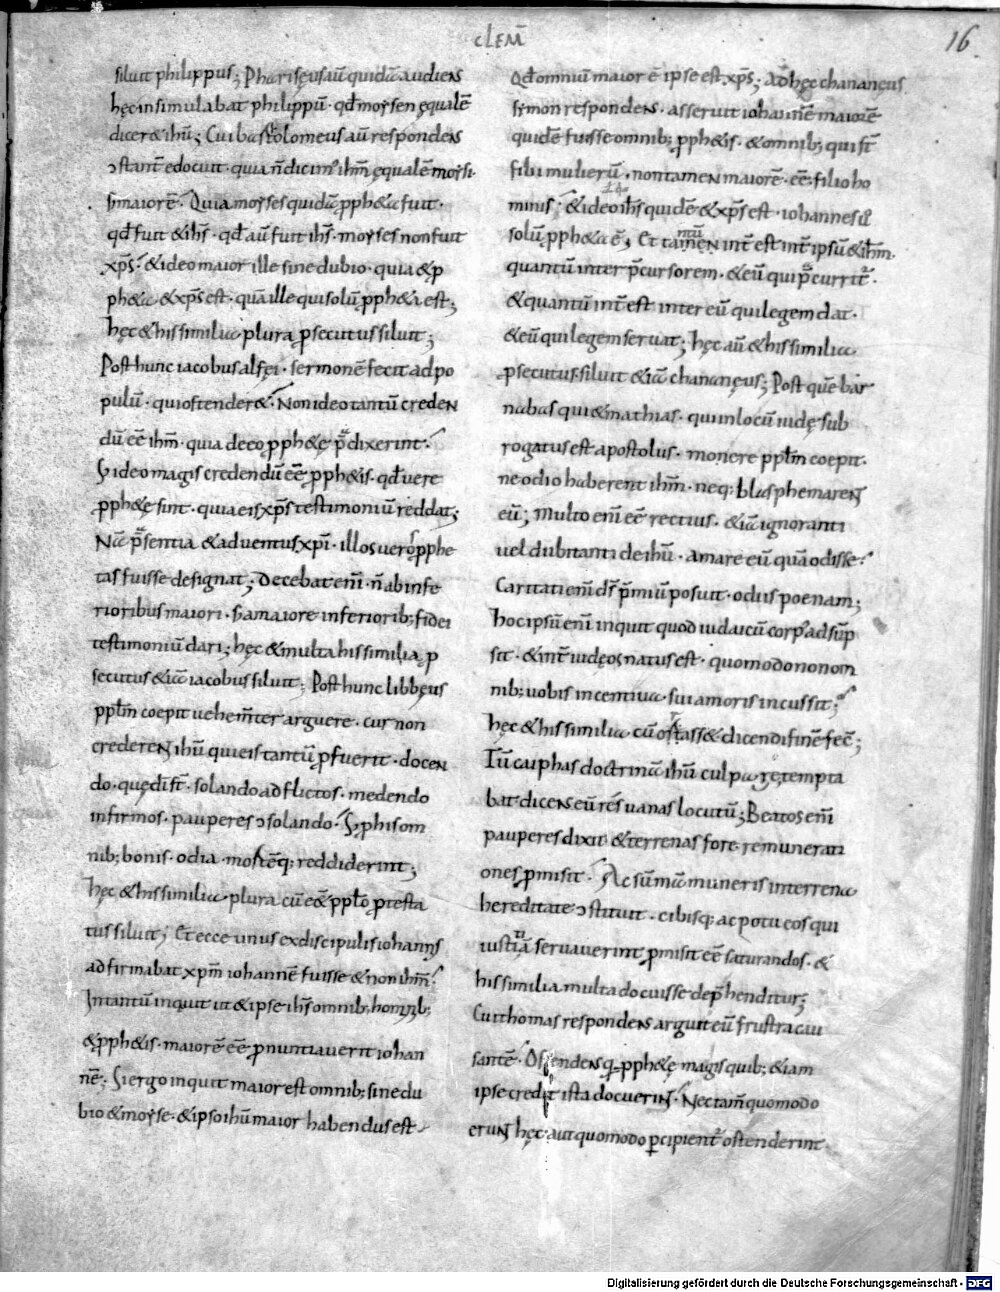 CLEM̄
16
siluit philippus; Pharisęus aū quidā audiens
hęc insimulabat philippū · qđ moysen ęqualē
diceret ihm̄; Cui bartolomeus aū respondens
ɔstant̄ edocuit · quia n̄ dicim' ihm̄ ęqualē moysi ·
s; maiorē · Quia moyses quidā ꝓph&a fuit ·
qđ fuit & ihs̄ · qđ aū fuit ihs̄ · moyses non fuit
xp̄s · & ideo maior ille sine dubio · quia & ꝓ
ph&a & xp̄s est · quā ille qui solū ꝓph&a est;
hęc & his similia plura ꝓsecutus siluit;
Post hunc iacobus alfęi · sermonē fecit ad po
pulū · qui ostender& · Non ideo tantū creden
dū eē ihm̄ · quia de eo ꝓph&ę p̄dixerint ·
S; ideo magis credendū eē ꝓph&is · qđ uere
ꝓph&ę sint · quia eis xp̄s testimoniū reddat;
Nā p̄sentia & aduentus xp̄i · illos uero ꝓphe
tas fuisse designat; Decebat eni̅ · n̄ ab infe
rioribus maiori · s; a maiore inferiorib; fidei
testimoniū dari; hęc & multa his similia ꝓ
secutus & iā iacobus siluit; Post hunc libbęus
ppl̄m coepit uehem̄ter arguere · cur non
crederent ihū qui eis tantū ꝓfuerit · docen
do · quę dī s̄t · solando adflictos · medendo
infirmos · pauperes ɔsolando · S; ꝓ his om
nib; bonis · odia mortēq; reddiderint;
hęc & his similia plura cū eēt ppl̄o ꝓtesta
tus siluit; Et ecce unus ex discipulis iohannis
adfirmabat xpm̄ iohannē fuisse & non ihm̄ ·
In tantū inquit ut & ipse ihs̄ omnib; hominib;
& ꝓph&is · maiorē eē ꝓnuntiauerit iohan
nē; Si ergo inquit maior est omnib; sine du
bio & moyse · & ipso ihū maior habendus est
Qđ omniū maior ē ipse est xp̄s; Ad hęc chananęus
symon respondens · asseruit iohannē maiorē
quidē fuisse omnib; ꝓph&is · & omnib; qui s̄t
filii mulierū · non tamen maiorē · eē · filio ho
minis; & ideo ihs̄ quidē & xp̄s est · iohannes ū
solū ꝓph&a ē; Et tantū int̄est int̄ ipsū & ihm̄ ·
quantū inter p̄cursorem · & eū qui p̄currit̄ ·
& quantū int̄est inter eū qui legem dat ·
& eū qui legem seruat; hęc aū & his similia
ꝓsecutus siluit & iā chananęus; Post quē bar
nabas qui & mathias · qui in locū iudę sub
rogatus est apostolus · monere ppl̄m coepit ·
ne odio haberent ihm̄ · neq; blasphemarent
eū; Multo eni̅ eē rectius · & iā ignoranti
uel dubitanti de ihū · amare eū quā odisse ·
Caritati eni̅ ds̄ p̄miū posuit · odiis poenam;
hoc ipsū eni̅ inquit quod iudaicū corp' adsūp
sit · & int̄ iudęos natus est · quomodo non om
nib; uobis incentiua sui amoris incussit;
hęc & his similia cū ostass& dicendi finē fec̄;
Tū caiphas doctrinā ihū culpare tempta
bat dicens eū res uanas locutū; Beatos eni̅
pauperes dixit & terrenas fore remunerati
ones ꝓmisit · Ac sūmā muneris in terrena
hereditate ɔstituit · cibisq; ac potu eos qui
iustitiā seruauerint ꝓmisit eē saturandos · &
his similia multa docuisse dep̄henditur;
Cui thomas respondens arguit eū frustra cau
santē · Ostendens q; ꝓph&ę magis quib; & iam
ipse credit ista docuerint · Nec tam̄ quomodo
erunt hęc · aut quomodo ꝑcipient̄ ostenderint ·
Digitalisierung gefördert durch die Deutsche Forschungsgemeinschaft - DFG